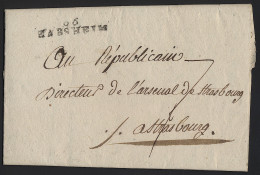 66
HABSHEIM
Au Républicain
Directeur de l'arsenal de Strasbourg
à Strasbourg.